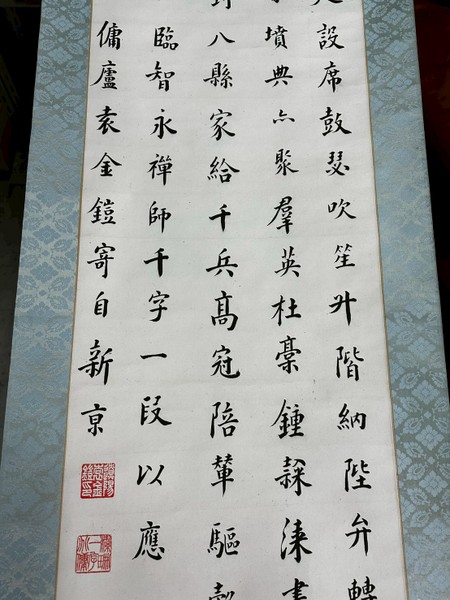 設席鼓瑟吹笙升階納陛弁轉
墳典亦聚羣英杜稾鍾隸漆書
封八縣家給千兵髙冠陪輦驅轂
臨智永禪師千字一段以應
傭廬袁金鎧寄自新京